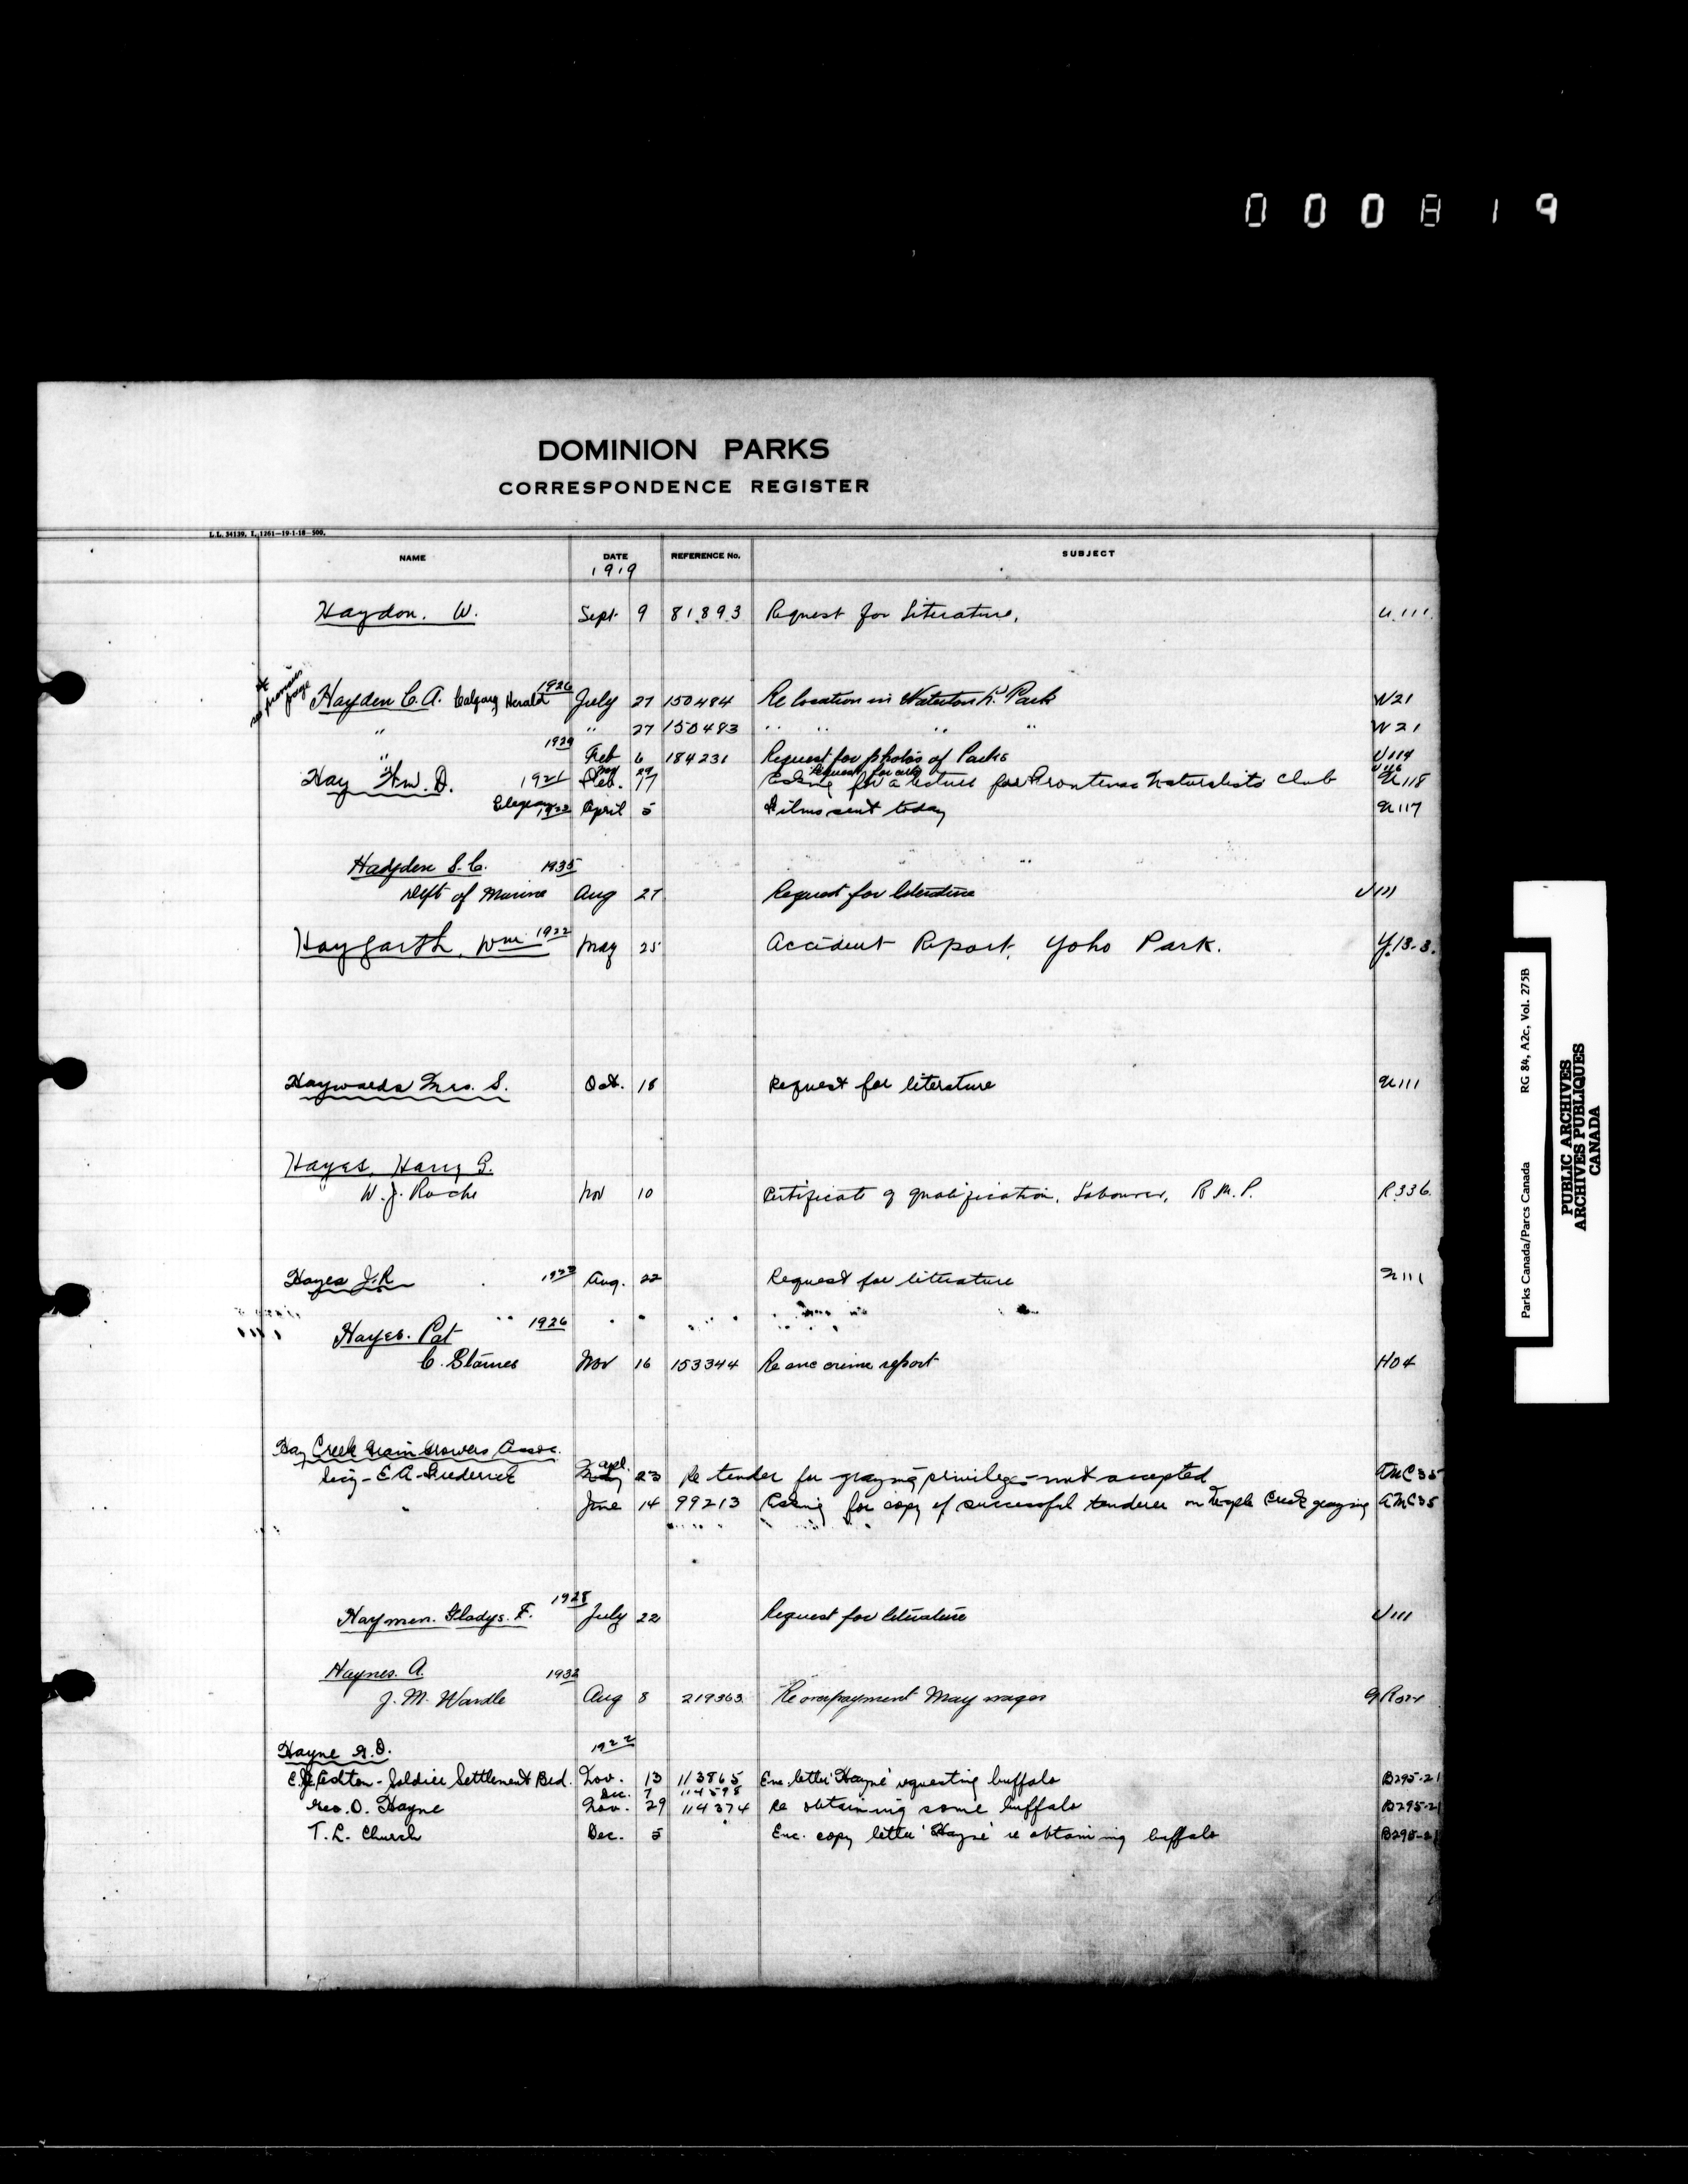 000819
DOMINION PARKS
CORRESPONDENCE REGISTER
L.L. 34139, I. 1261—19-1-18—500.
NAME DATE REFERENCE No. SUBJECT
1919
Haydon. W. Sept 9 81893 Request for Literature. U.111.
* previous page
Hayden C. A. Calgary Herald 1926 July 27 150484 Re location in Waterton L. Park W21
" " 27 150483 " " " " W21
" 1929 Feb 6 184231 Request for photos of Parks U114
" 29 Request for cuts U116
Hay Wm. D. 1921 Feb. 17 Asking for a lecture for Frontenac Naturalists Club U118
1922 April 5 Films sent today U117
Hadyden S. C. 1935
Dept of Marine Aug 27 Request for literature U111
Haygarth, Wm 1922 May 25 Accident Report, Yoho Park. Y.13-3.
Haywards Mrs. S. Oct. 18 Request for literature U111
Hayes, Harry G.
W. J. Roche Nov 10 Certificate of qualification, Labourer, R.M.P. R.336.
Hayes J.R. 1922 Aug. 22 Request for literature U111
Hayes. Pat 1926
C. Starnes Nov 16 153344 Re enc crime report H04
Hay Creek Grain Growers Assoc.
Secy - E A Frederick apl. 23 Re tender for grazing privileges - not accepted AMC35
" June 14 99213 Asking for copy of successful tenderer on Creek grazing AMC35
Haymen. Gladys. F. 1928 July 22 Request for literature U111
Haynes. A. 1932
J. M. Wardle Aug 8 219363 Re overpayment May wages
Hayne G.O. 1922
Ashton - Soldier Settlement Brd. Nov. 13 113865 Enc. letter 'Hayne' requesting buffalo B295-21
Dec. 7 114598
Geo. O. Hayne Nov. 29 114374 Re obtaining some buffalo B295-21
T. L. Church Dec. 5 Enc. copy letter 'Hayne' re obtaining buffalo B295-21
Parks Canada/Parcs Canada RG 84, A2c, Vol. 275B
PUBLIC ARCHIVES
ARCHIVES PUBLIQUES
CANADA